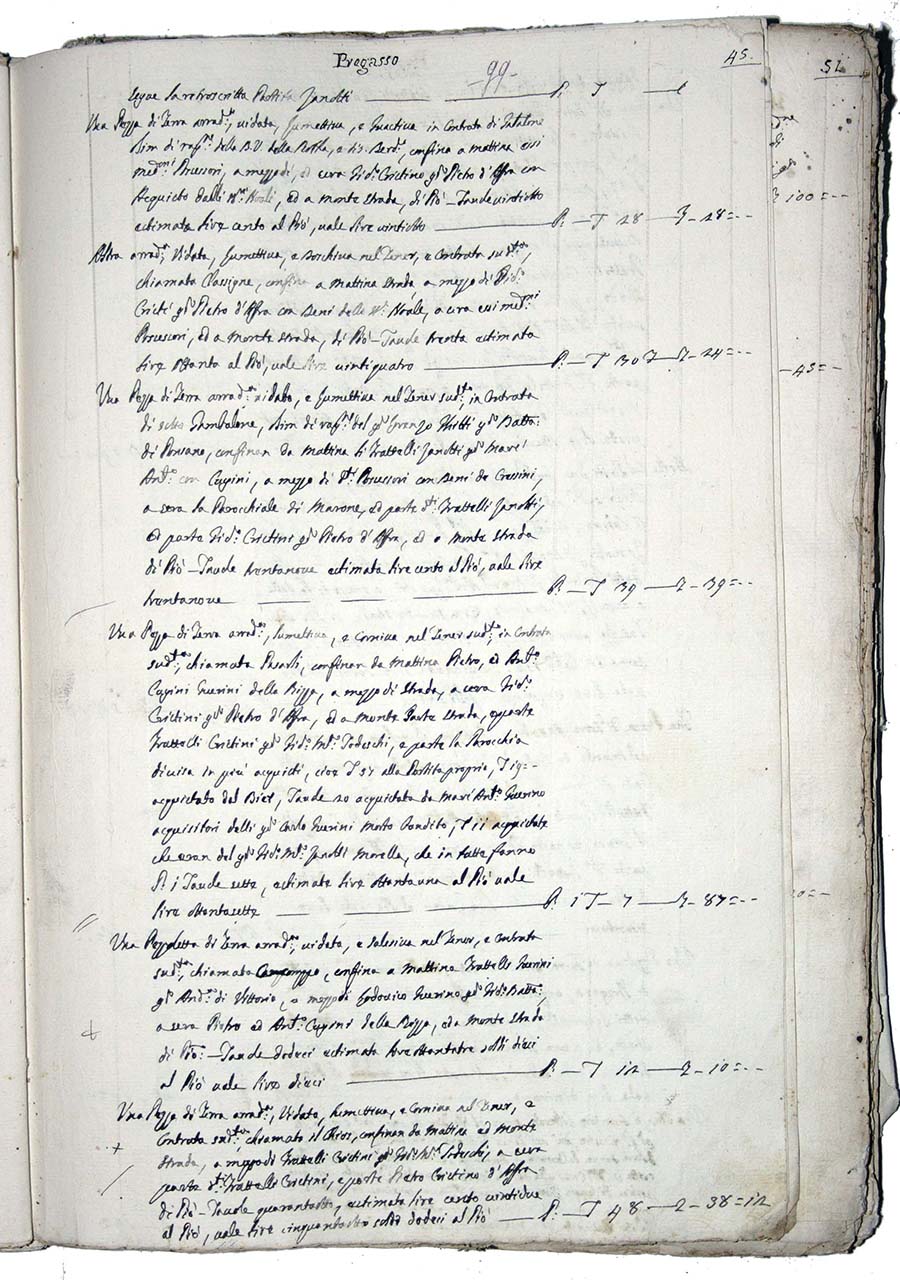 Pregasso
99
45
52
Segue la retroscritta Partita Zanotti P. T L
Una Pezza di Terra arrad:a, vidata, fumettiva, e in Contrata di
Bim di rag:ni della B.V. della e di Berd:o, confina a mattina essi
med:mi Possessori, a mezzodì, ed sera Gio: Cristino q:m Pietro d'Affra con
Acquisto dalli Noali, ed a monte strada, di Piò – Taule vintiotto
estimata lire cento al Piò, vale lire vintiotto P. – T 28 – L – 28=--
100=--
Altra arrad:a, Vidata, fumettiva, e nel Tener, e Contrata sud:ta,
chiamata confina a mattina strada a mezzo dì
q:m Pietro d'Affra con Beni delle Noale, a sera essi med:mi
Possessori, ed a monte strada, di Piò – Taule trenta estimata
lire ottanta al Piò, vale lire vintiquatro P. – T 30 – L – 24=--
– 43=–
Una Pezza di Terra arrad:a vidata, e fumettiva nel Tener sud:to, in Contrata
di sotto bim di rag:ni del q:m Vitti q:m Batta:
di Ponzano, confinan da mattina li Frattelli Zanotti q:m
Ant:o con Cugini, a mezzo dì Possessori con Beni de Cressini,
a sera la Parochiale di Marone, ed parte Frattelli Zanotti,
ed parte Gio: Cristini q:m Pietro d'Affra, ed a monte strada
di Piò – Taule trentanove estimata lire cento al Piò, vale lire
trentanove P. – T 39 – L – 39=--
Una Pezza di Terra arrad:a, fumettiva, e Corniva nel Tener sud:to, in Contrata
sud:ta, chiamata confinan da mattina Pietro, ed Ant:o
Cugini Guerini della a mezzo dì strada, a sera Gio:
Cristini q:m Pietro d'Affra, ed a monte Parte strada, e parte
Frattelli Cristini q:m Gio: M:a Todeschi, e parte la Parochia
divisa in più acquisti, cioè T 57 alla Partita propria, T 19=–
acquistato dal Bier, Taule 20 acquistata da Ant:o Guerino
acquisitori delli q:m Carlo Guerini Morto Bandito, T 11 acquistate
che eran del q:m Gio: M:a Zanotti Morella, che in tutte fanno
P. 1 Taule sette, estimate lire ottantauna al Piò vale
lire ottantasette P. 1 T – 7 – L – 87=--
Una Pezzoletta di Terra arrad:a, vidata, e Salesiva nel Tener, e Contrata
sud:ta, chiamata confina a mattina Frattelli Guerini
q:m And:a di Vittorio, a mezzo dì Lodovico Guerino q:m Gio: Batta:,
a sera Pietro ed Ant:o Cugini della ed a monte strada
di Piò – Taule dodeci estimata lire ottantatre soldi dieci
al Piò vale lire dieci P. – T 12 – L – 10=--
Una Pezza di Terra arrad:a, Vidata, fumettiva, e Corniva nel Tener, e
Contrata sud:ta, chiamata il Chios, confinan da mattina ed monte
strada, a mezzo dì Frattelli Cristini q:m Gio: M:a Todeschi, a sera
parte Frattelli Cristini, e parte Pietro Cristino d'Affra
di Piò – Taule quarantotto, estimata lire cento vintidue
al Piò, vale lire cinquantotto soldi dodeci al Piò P. – T 48 – L – 38=12